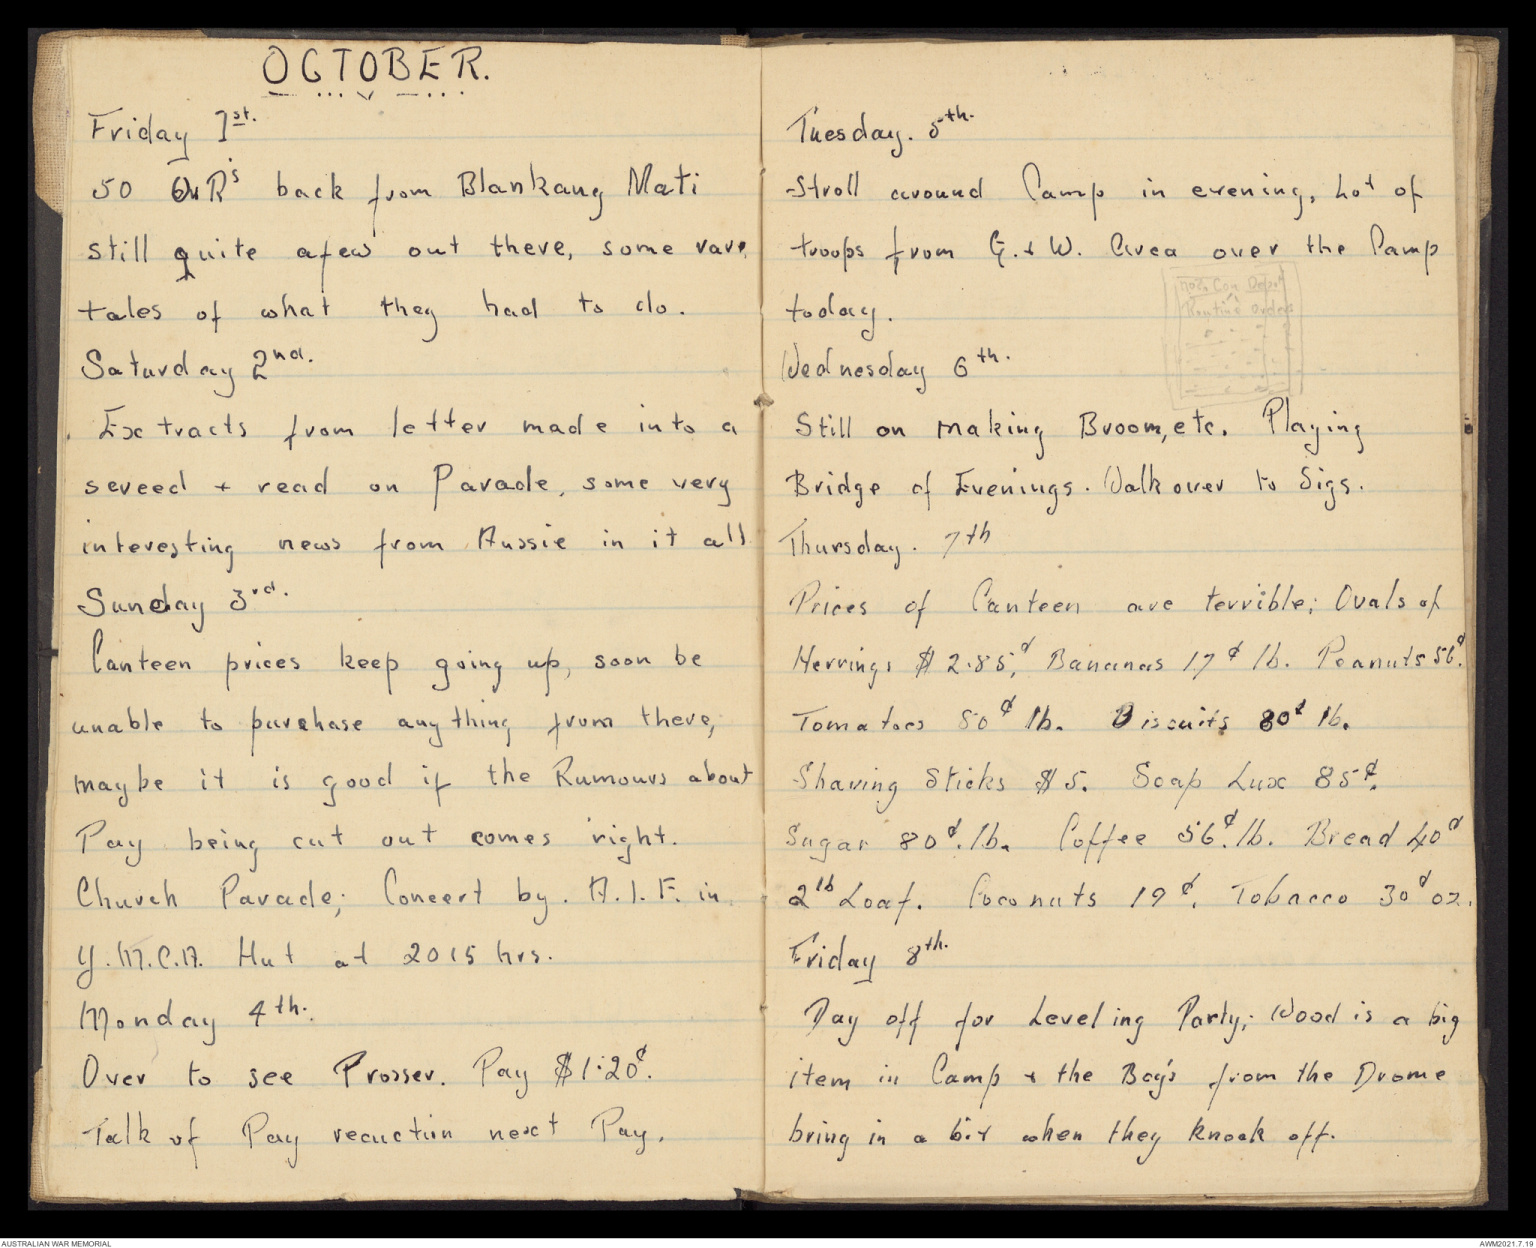 OCTOBER.
Friday 1st.
50 O.R's back from Blankang Mati
still quite afew out there, some rare
tales of what they had to do.
Saturday 2nd.
Extracts from letter made into a
sereed + read on Parade, some very
interesting news from Aussie in it all
Sunday 3rd.
Canteen prices keep going up, soon be
unable to purchase anything from there,
maybe it is good if the Rumours about
Pay being cut out comes right.
Church Parade; Concert by. A.I.F. in
Y.M.C.A. Hut at 2015 hrs.
Monday 4th.
Over to see Prosser. Pay $1.20¢.
Talk of Pay recuction next Pay.
Tuesday. 5th.
Stroll around Camp in evening, Lot of
troops from G.+W. Area over the Camp
today.
Wednesday 6th.
Still on making Broom,etc. Playing
Bridge of Evenings. Walk over to Sigs.
Thursday. 7th
Prices of Canteen are terrible; Ovals of
Herrings $2.85,¢ Bananas 17¢ lb. Peanuts 56¢.
Tomatoes 80¢ lb. Biscuits 80¢ lb.
Shaving Sticks $5. Soap Lux 85¢.
Sugar 80¢.lb. Coffee 56¢.lb. Bread 40¢
2lb Loaf. Coconuts 19¢. Tobacco 30¢ oz.
Friday 8th.
Day off for Leveling Party; Wood is a big
item in Camp + the Boys from the Drome
bring in a bit when they knock off.
Con Depot
Routine Orders
AUSTRALIAN WAR MEMORIAL
AWM2021.7.19